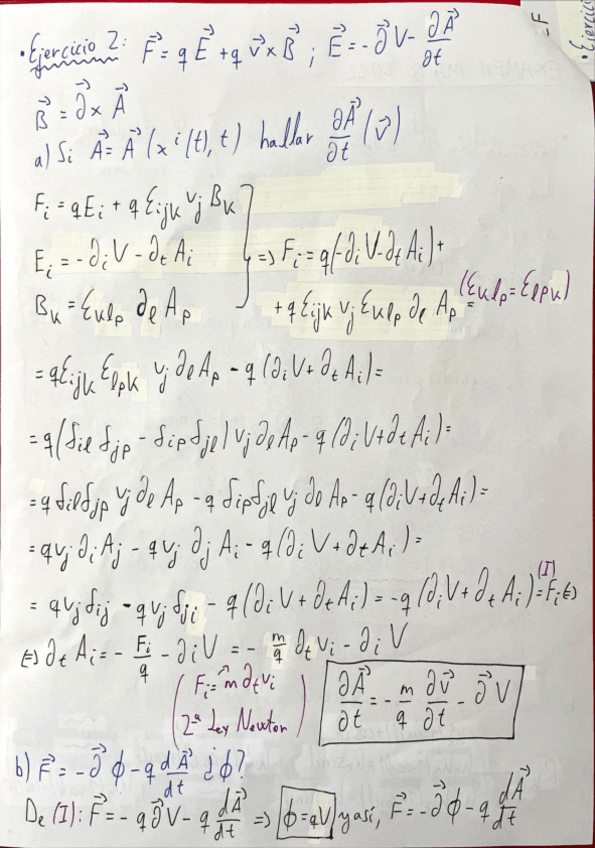 • Ejercicio 2: F⃗ = q E⃗ + q v⃗ × B⃗ ; E⃗ = -∂⃗ V - ∂A⃗/∂t
B⃗ = ∂⃗ × A⃗
a) Si A⃗ = A⃗ (xⁱ(t), t) hallar ∂A⃗/∂t (v⃗)
Fᵢ = qEᵢ + q Ɛijk vj Bk
Eᵢ = -∂ᵢV - ∂t Aᵢ
Bk = Ɛklp ∂l Ap
=> Fᵢ = q(-∂ᵢV - ∂t Aᵢ) +
+ q Ɛijk vj Ɛklp ∂l Ap = (Ɛklp = Ɛlpk)
= q Ɛijk Ɛlpk vj ∂l Ap - q (∂ᵢV + ∂t Aᵢ) =
= q (δil δjp - δip δjl) vj ∂l Ap - q (∂ᵢV + ∂t Aᵢ) =
= q δil δjp vj ∂l Ap - q δip δjl vj ∂l Ap - q (∂ᵢV + ∂t Aᵢ) =
= q vj ∂ᵢ Aj - q vj ∂j Aᵢ - q (∂ᵢ V + ∂t Aᵢ) =
= q vj δij - q vj δji - q (∂ᵢ V + ∂t Aᵢ) = -q (∂ᵢ V + ∂t Aᵢ) (I)= Fᵢ <=>
<=> ∂t Aᵢ = - Fᵢ/q - ∂ᵢ V = - m/q ∂t vᵢ - ∂ᵢ V
(Fᵢ = m ∂t vᵢ
2ª Ley Newton)
∂A⃗/∂t = - m/q ∂v⃗/∂t - ∂⃗ V
b) F⃗ = -∂⃗ ϕ - q dA⃗/dt ¿ϕ?
De (I): F⃗ = - q ∂⃗V - q dA⃗/dt => ϕ = qV y así, F⃗ = -∂⃗ϕ - q dA⃗/dt